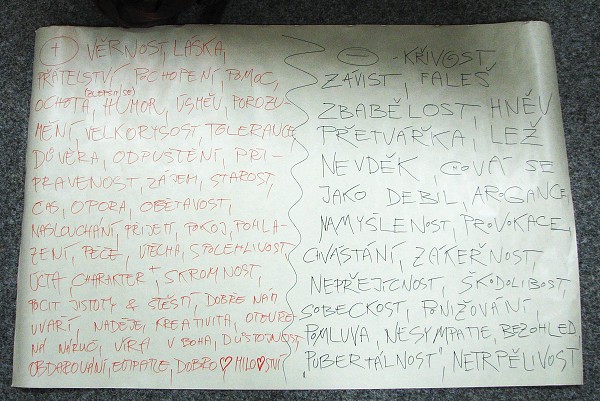 + VĚRNOST, LÁSKA,
PŘÁTELSTVÍ, POCHOPENÍ, POMOC,
OCHOTA (ZLEPŠIT SE), HUMOR, ÚSMĚV, POROZU-
MĚNÍ, VELKORYSOST, TOLERANCE,
DŮVĚRA, ODPUŠTĚNÍ, PŘI-
PRAVENOST, ZÁJEM, STAROST,
ČAS, OPORA, OBĚTAVOST,
NASLOUCHÁNÍ, PŘIJETÍ, POKOJ, POHLA-
ZENÍ, PÉČE, ÚTĚCHA, SPOLEHLIVOST,
ÚCTA, CHARAKTER +, SKROMNOST,
POCIT JISTOTY & ŠTĚSTÍ, DOBŘE NÁM
UVAŘÍ, NADĚJE, KREATIVITA, OTEVŘE-
NÁ NÁRUČ, VÍRA V BOHA, DŮSTOJNOST
OBDAROVÁNÍ, EMPATIE, DOBRO ♡ MILO♡STVÍ
- - KŘIVOST,
ZÁVIST, FALEŠ
ZBABĚLOST, HNĚV
PŘETVÁŘKA, LEŽ
NEVDĚK, CHOVAT SE
JAKO DEBIL, AROGANCE,
NAMYŠLENOST, PROVOKACE,
CHVÁSTÁNÍ, ZÁKEŘNOST,
NEPŘEJÍCNOST, ŠKODOLIBOST,
SOBECKOST, PONIŽOVÁNÍ,
POMLUVA, NESYMPATIE, BEZOHLED,
"PUBERTÁLNOST", NETRPĚLIVOST